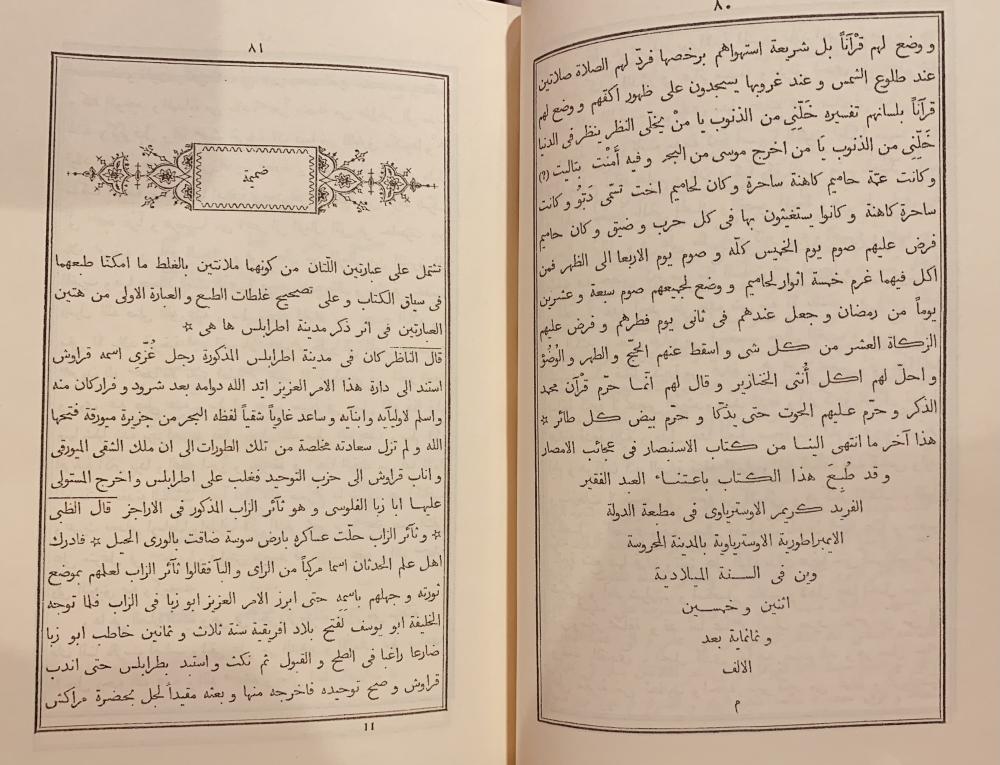 ٨٠
و وضع لهم قْرآناً بل شريعة استهواهم برخصها فردّ لهم الصلاة صلاتين
عند طلوع الشمس و عند غروبها يسجدون على ظهور اكفّهم و وضع لهم
قرآناً بلسانهم تفسيره خَلّنِى من الذنوب يا منْ يخلّى النظر ينظر فى الدنيا
خَلِّنِى من الذنوب يَا من اخرج موسى من البحر و فيه أَمَنْت بتاليت (؟)
و كانت عمّة حاميم كاهنة ساحرة و كان لحاميم اخت تسمّى دَبّو و كانت
ساحرة كاهنة و كانوا يستغيثون بها فى كل حرب و ضيق و كان حاميم
فرض عليهم صوم يوم الخميس كلّه و صوم يوم الاربعا الى الظهر فمن
اكل فيهما غرم خمسة اثوار لحاميم و وضع لجميعهم صوم سبعة و عشرين
يوماً من رمضان و جعل عندهم فى ثانى يوم فطرهم و فرض عليهم
الزكاة العشر من كل شى و اسقط عنهم الحجّ و الطهر و الوُضُوْ
و احلّ لهم اكل أُنْثى الخنازير و قال لهم انّما حرّم قرْآن محمد
الذكر و حرّم عليهم الحوت حتى يذكّا و حرّم بيض كل طائر ☆
هذا آخر ما انتهى الينا من كتاب الاستبصار فى عجائب الامصار
و قد طُبِعَ هذا الكتاب باعتناء العبد الفقير
الفريد كريمر الاوسترياوى فى مطبعة الدولة
الايمبراطورية الاوسترياوية بالمدينة المحروسة
وين فى السنة الميلادية
اثنين و خمسين
و ثمانماية بعد
الالف
م
٨١
ضميمة
تشتمل على عبارتين اللّتان من كونهما ملانتين بالغلط ما امكنّا طبعهما
فى سياق الكتاب و على تصحيح غلطات الطبع و العبارة الاولى من هتين
العبارتين فى اثر ذكر مدينة اطرابلس ها هى ☆
قال الناظر كان فى مدينة اطرابلس المذكورة رجل غُزّى اسمه قراوش
استند الى دارة هذا الامر العزيز ايّد الله دوامه بعد شرود و فرار كان منه
و اسلم لاوليآيه و ابنآيه و ساعد غاوياً شقياً لفظه البحر من جزيرة ميورقة فتحها
الله و لم تزل سعادته مخلصة من تلك الطورات الى ان ملك الشقى الميورقى
و اناب قراوش الى حزب التوحيد فغلب على اطرابلس و اخرج المستولى
عليها ابا زبا الفلوسى و هو ثآئر الزاب المذكور فى الاراجز قال الظبى
☆ و ثآئر الزاب حلّت عساكره بارض سوسة ضاقت بالورى الحيل ☆ فادرك
اهل علم الحدثان اسما مركباً من الزاى و البآ فقالوا ثآئر الزاب لعلهم بموضع
ثورته و جهلهم باسمِهِ حتى ابرز الامر العزيز ابو زبا فى الزاب فلما توجه
الخليفة ابو يوسف لفتح بلاد افريقية سنة ثلاث و ثمانين خاطب ابو زبا
ضارعا راغبا فى الصلح و القبول ثم نكث و استبد بطرابلس حتى اندب
قراوش و صح توحيده فاخرجه منها و بعثه مقيداً لجل بحضرة مراكش
11